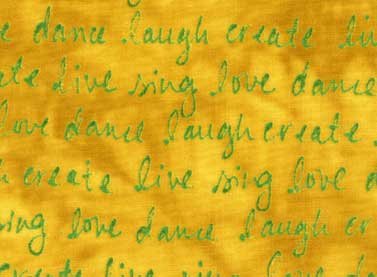 e dance laugh create liv
ate live sing love dance
love dance laugh create
h create live sing love d
sing love dance laugh cr
create live sing love d